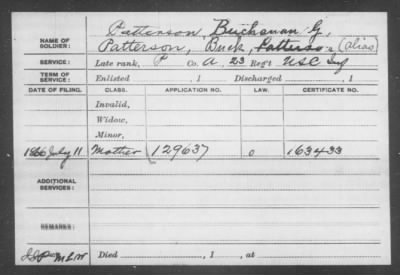 Patterson, Buchanan G,
NAME OF SOLDIER: Patterson, Buck, Patterson (alias)
SERVICE: Late rank, P Co. A, 23 Reg't USC Inf
TERM OF SERVICE: Enlisted , 1 Discharged , 1
DATE OF FILING. CLASS. APPLICATION NO. LAW. CERTIFICATE NO.
Invalid,
Widow,
Minor,
1866 July 11 Mother 129637 0 163433
ADDITIONAL SERVICES:
REMARKS:
Died , 1 , at